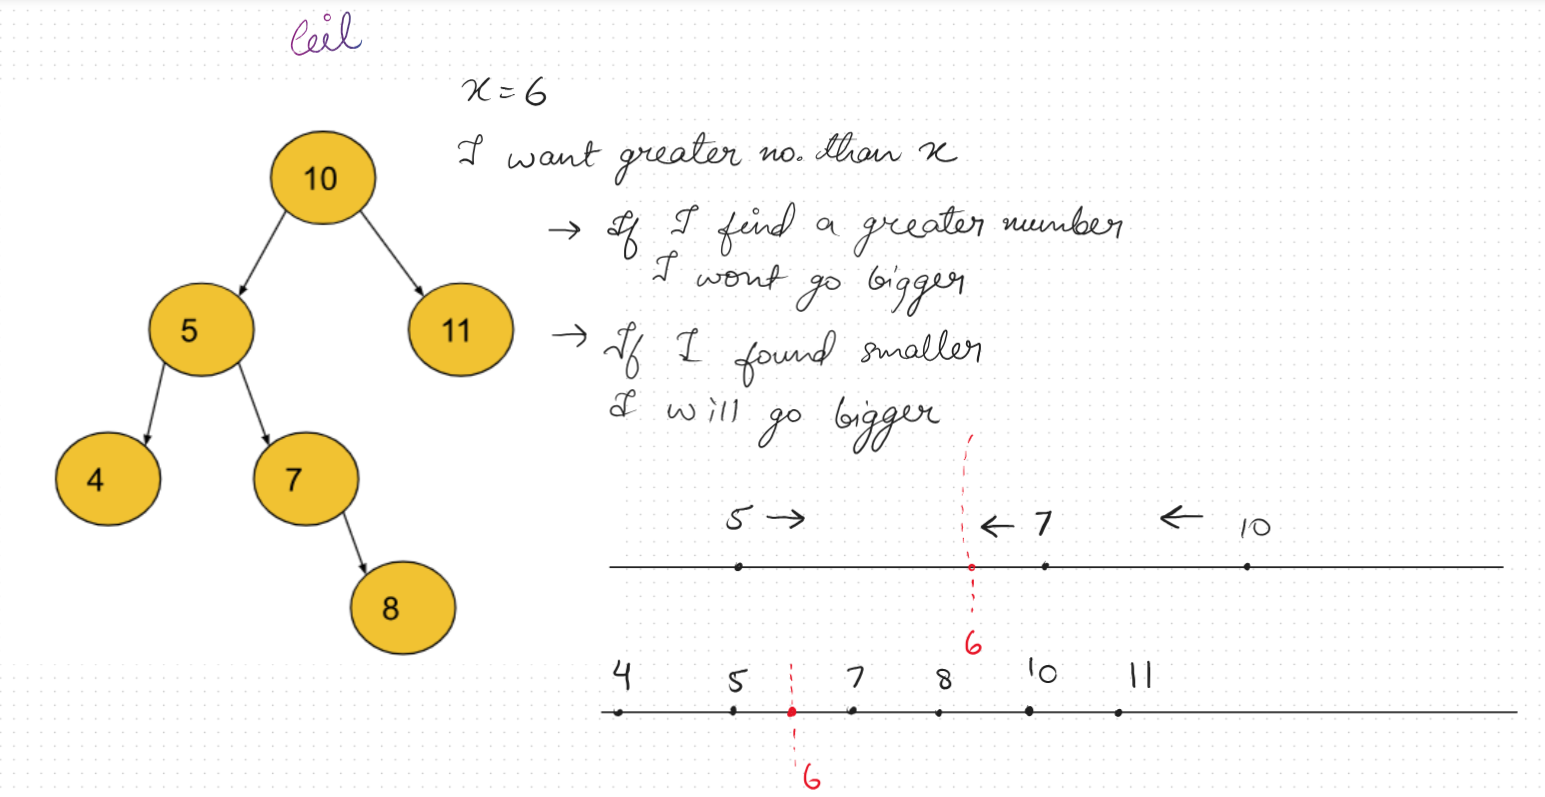 Ceil
x = 6
I want greater no. than x
→ If I find a greater number
I wont go bigger
→ If I found smaller
I will go bigger
10
5
11
4
7
8
5 → ← 7 ← 10
6
4 5 7 8 10 11
6